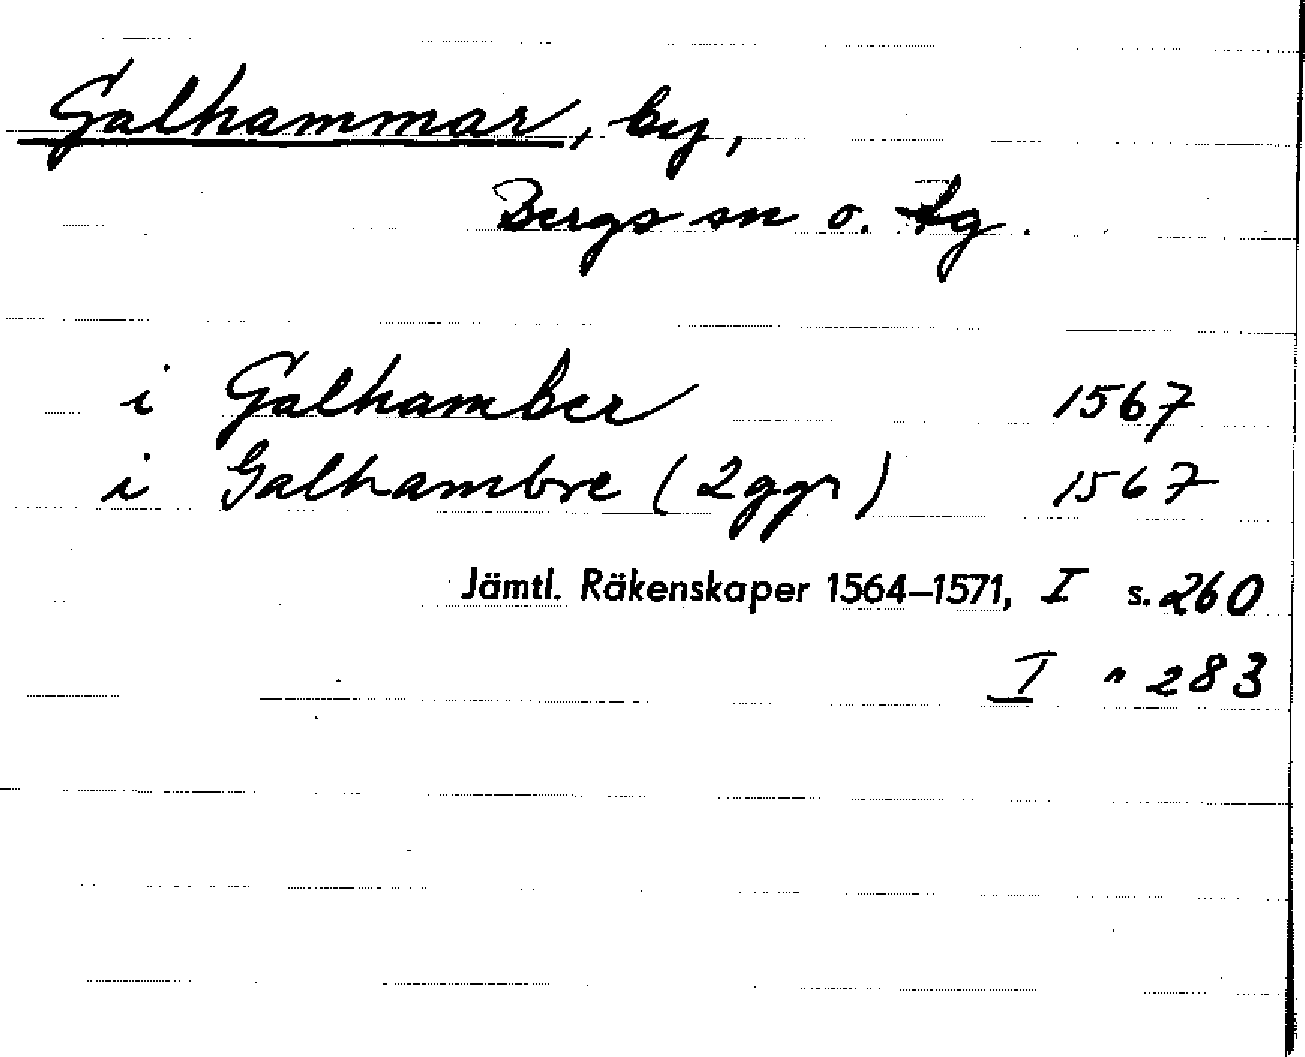 Galhammar, by,
Bergs sn o. tg.
i Galhamber 1567
i Galhambre (2 ggr) 1567
Jämtl. Räkenskaper 1564–1571, I s. 260
I " 283